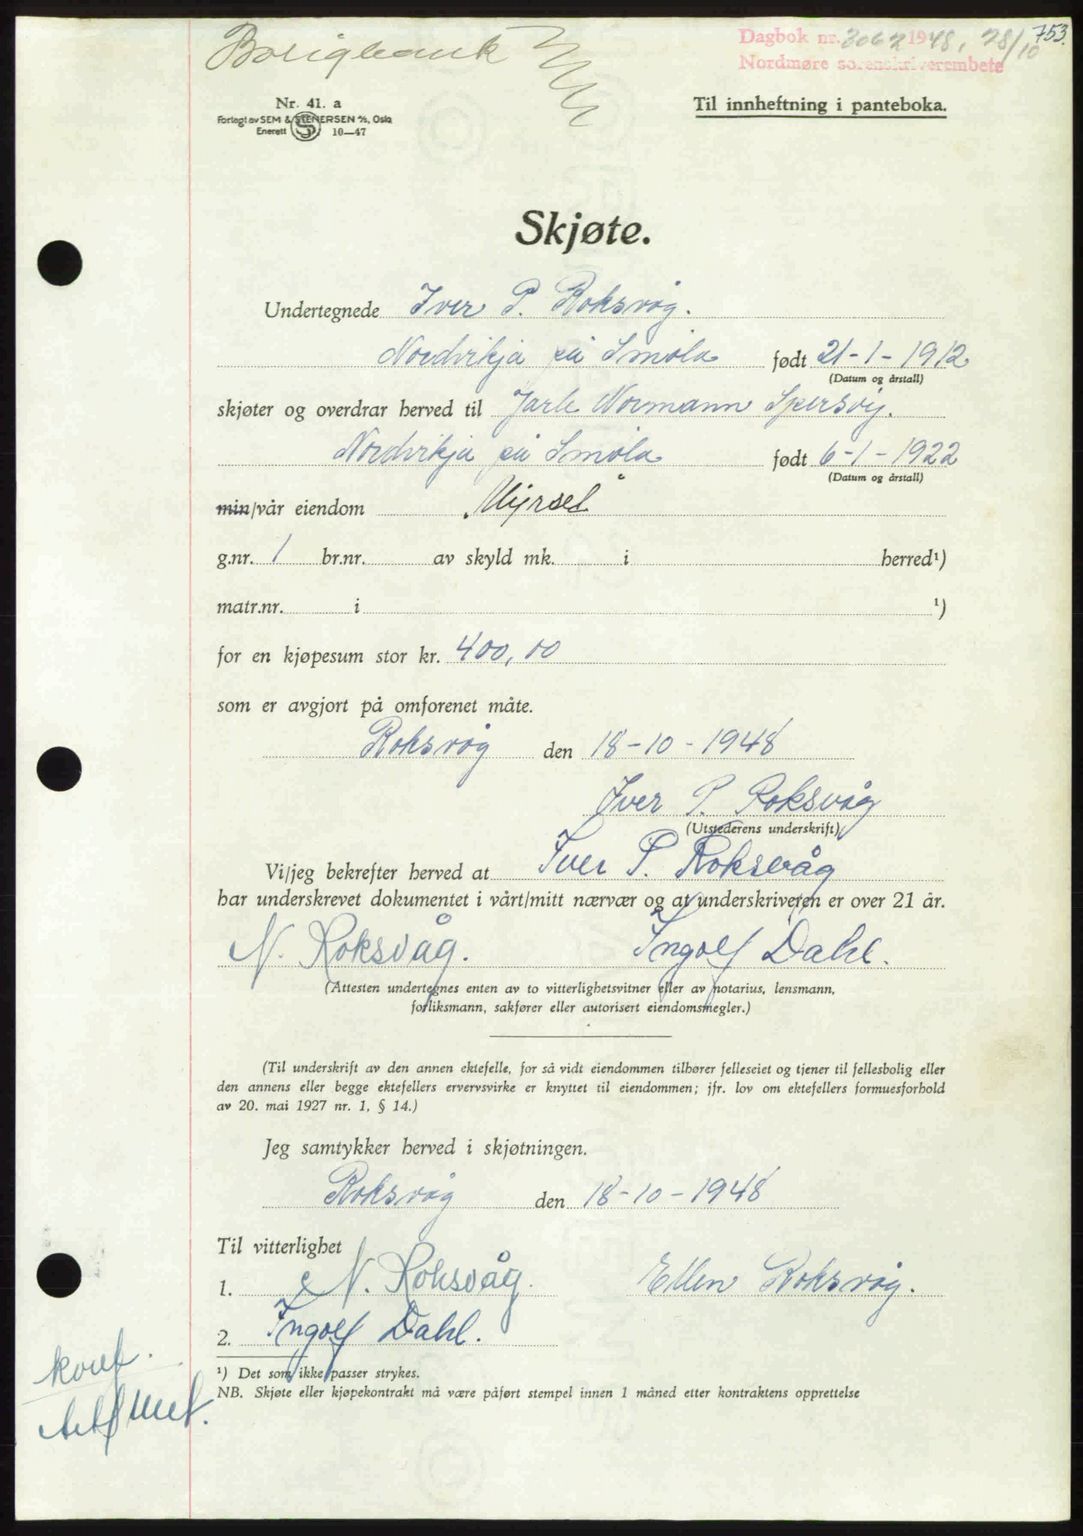 753.
Dagbok nr. 3062 1948, 28/10
Nordmøre sorenskriverembete
Boligbank
Nr. 41. a
Forlagt av SEM & STENERSEN A/S, Oslo
Enerett S 10—47
Til innheftning i panteboka.
Skjøte.
Undertegnede Iver P. Roksvåg.
Nordvikja på Smøla født 21-1-1912
(Datum og årstall)
skjøter og overdrar herved til Jarle Normann Spersvig.
Nordvikja på Smøla født 6-1-1922
(Datum og årstall)
min/vår eiendom „Myrsel"
g.nr. 1 br.nr. av skyld mk. i herred¹)
matr.nr. i ¹)
for en kjøpesum stor kr. 400,00
som er avgjort på omforenet måte.
Roksvåg den 18-10-1948
Iver P. Roksvåg
(Utstederens underskrift)
Vi/jeg bekrefter herved at Iver P. Roksvåg
har underskrevet dokumentet i vårt/mitt nærvær og at underskriveren er over 21 år.
N. Roksvåg. Ingolf Dahl.
(Attesten undertegnes enten av to vitterlighetsvitner eller av notarius, lensmann,
forliksmann, sakfører eller autorisert eiendomsmegler.)
(Til underskrift av den annen ektefelle, for så vidt eiendommen tilhører felleseiet og tjener til fellesbolig eller
den annens eller begge ektefellers ervervsvirke er knyttet til eiendommen; jfr. lov om ektefellers formuesforhold
av 20. mai 1927 nr. 1, § 14.)
Jeg samtykker herved i skjøtningen.
Roksvåg den 18-10-1948
Til vitterlighet
1. N. Roksvåg. Ellen Roksvåg.
2. Ingolf Dahl.
¹) Det som ikke passer strykes.
NB. Skjøte eller kjøpekontrakt må være påført stempel innen 1 måned etter kontraktens opprettelse
konf.